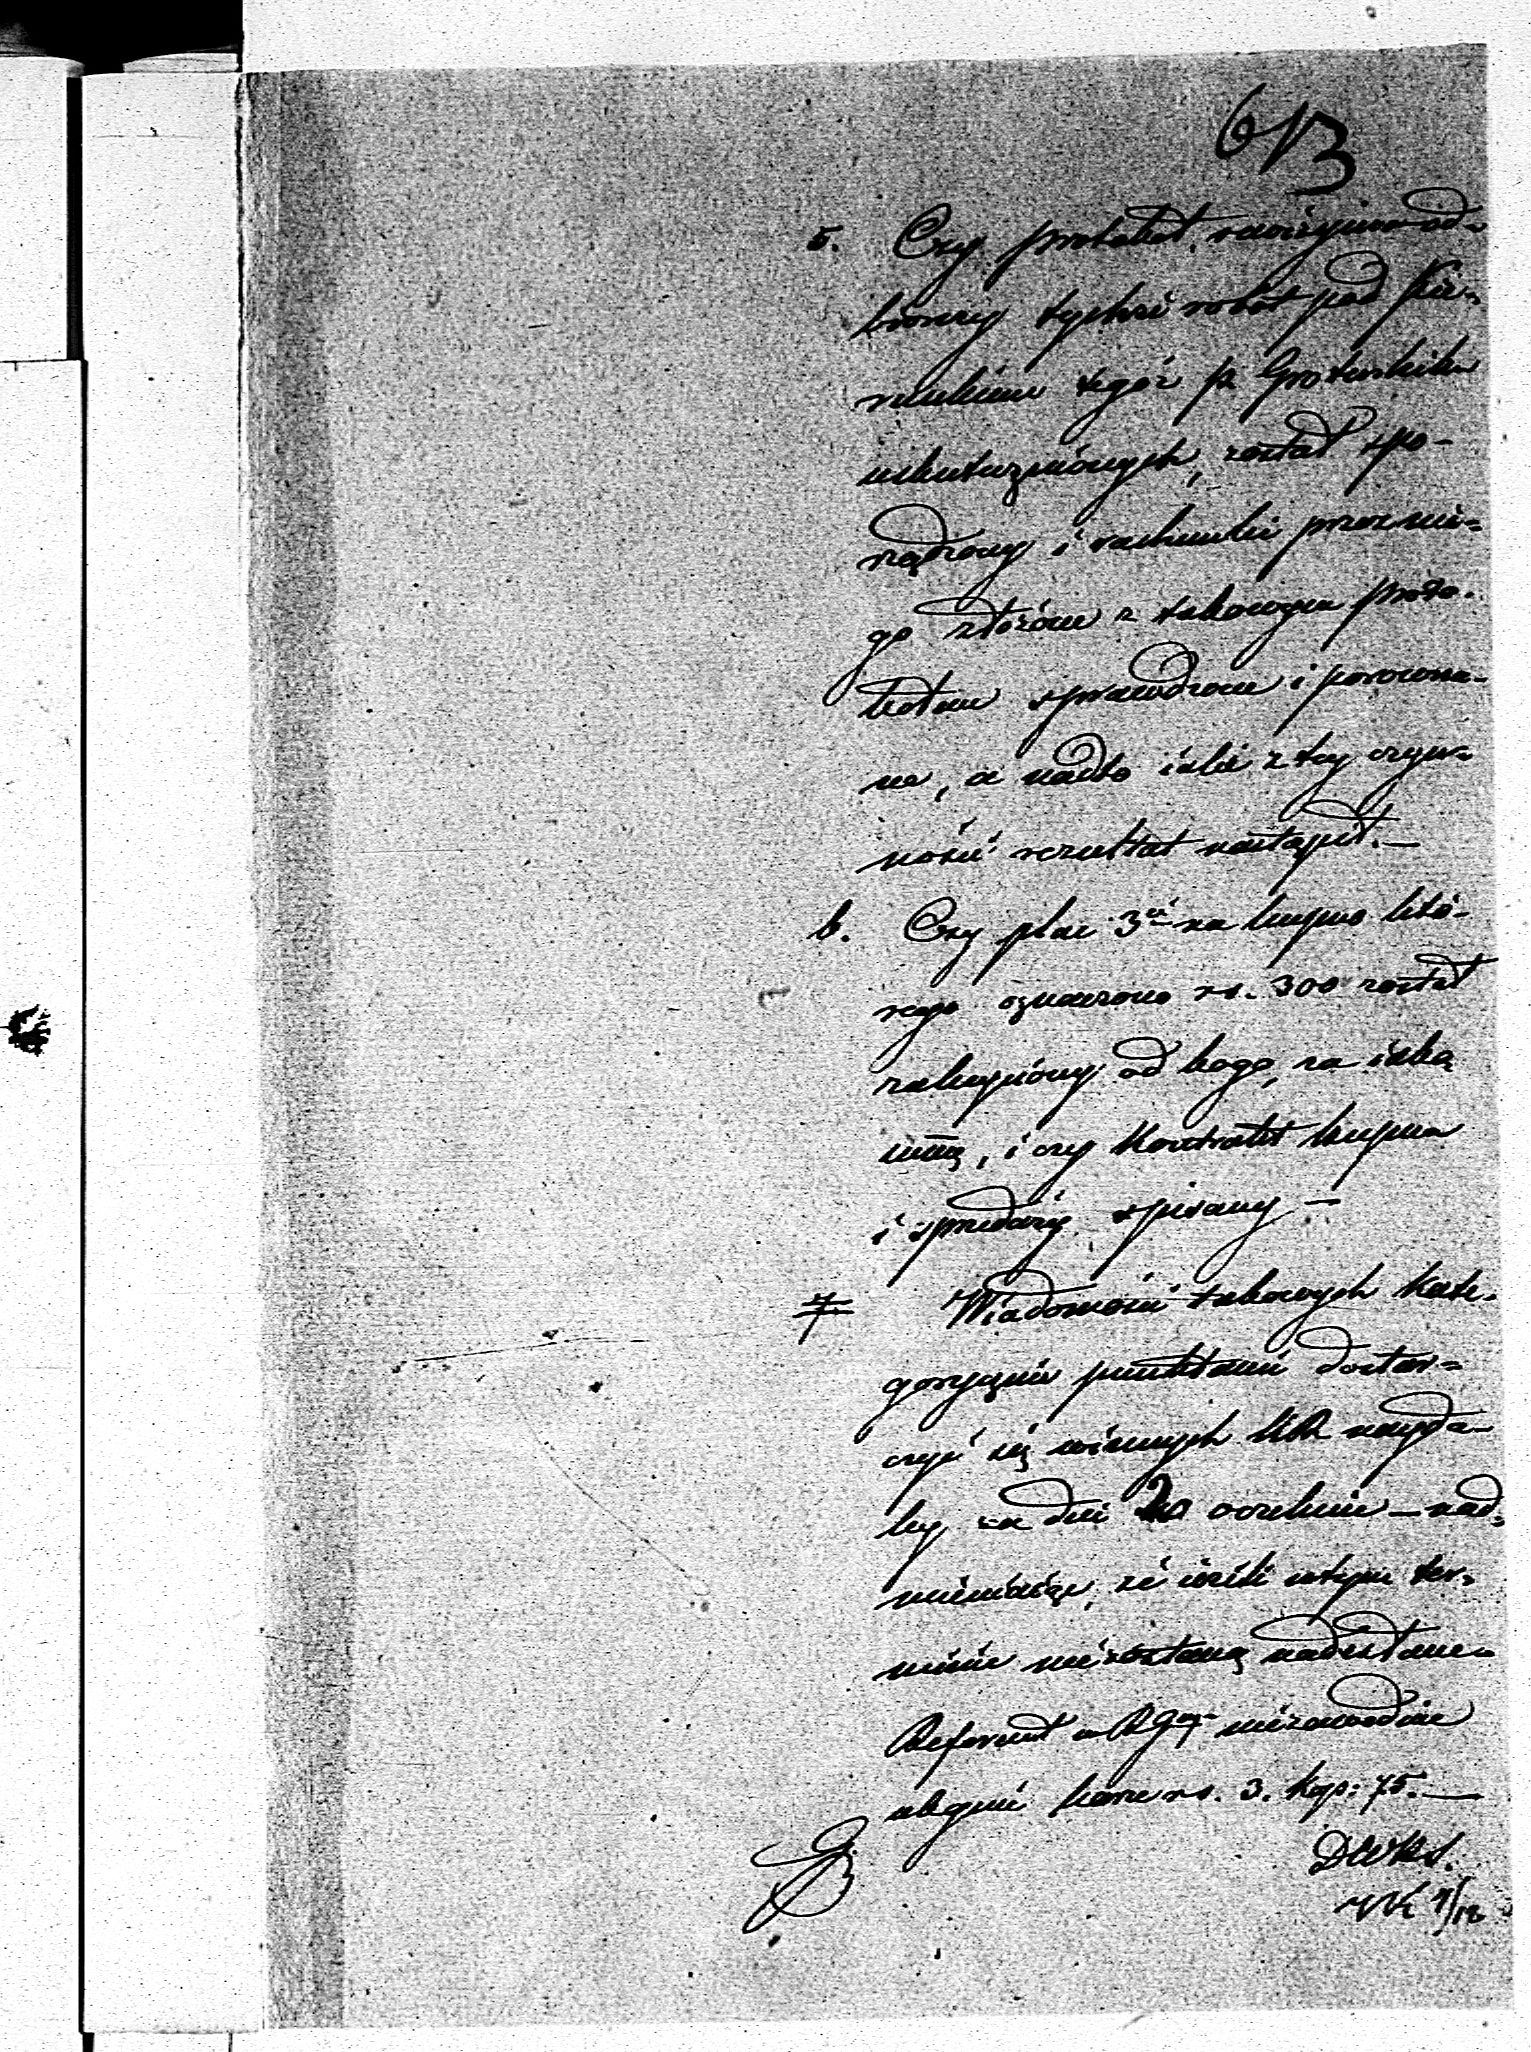 613
5. Czy protokół rewizyjno od-
biorczy tychże robót pod kie-
runkiem tegoż p.
uskutecznionych, został spo-
rządzony i rachunki przez nie-
go złożone z takowym proto-
kołem sprawdzone i porówna-
ne, a nadto iaki z tey czyn-
ności rezultat nastąpił. —
6. Czy plac 3ci na kupno któ-
rego oznaczono rs. 300 został
zakupiony od kogo, za iaką
summę, i czy Kontrakt kupna
i sprzedaży spisany —
7. Wiadomości takowych kate-
gorycznie punktami dostar-
czyć się winnych
za dni 20 oczekuie — nad-
mieniaiąc, że ieżeli w tym ter-
minie nie zostaną nadesłane
Referent niezawodnie
ulegnie karze rs. 3. kop: 75. —